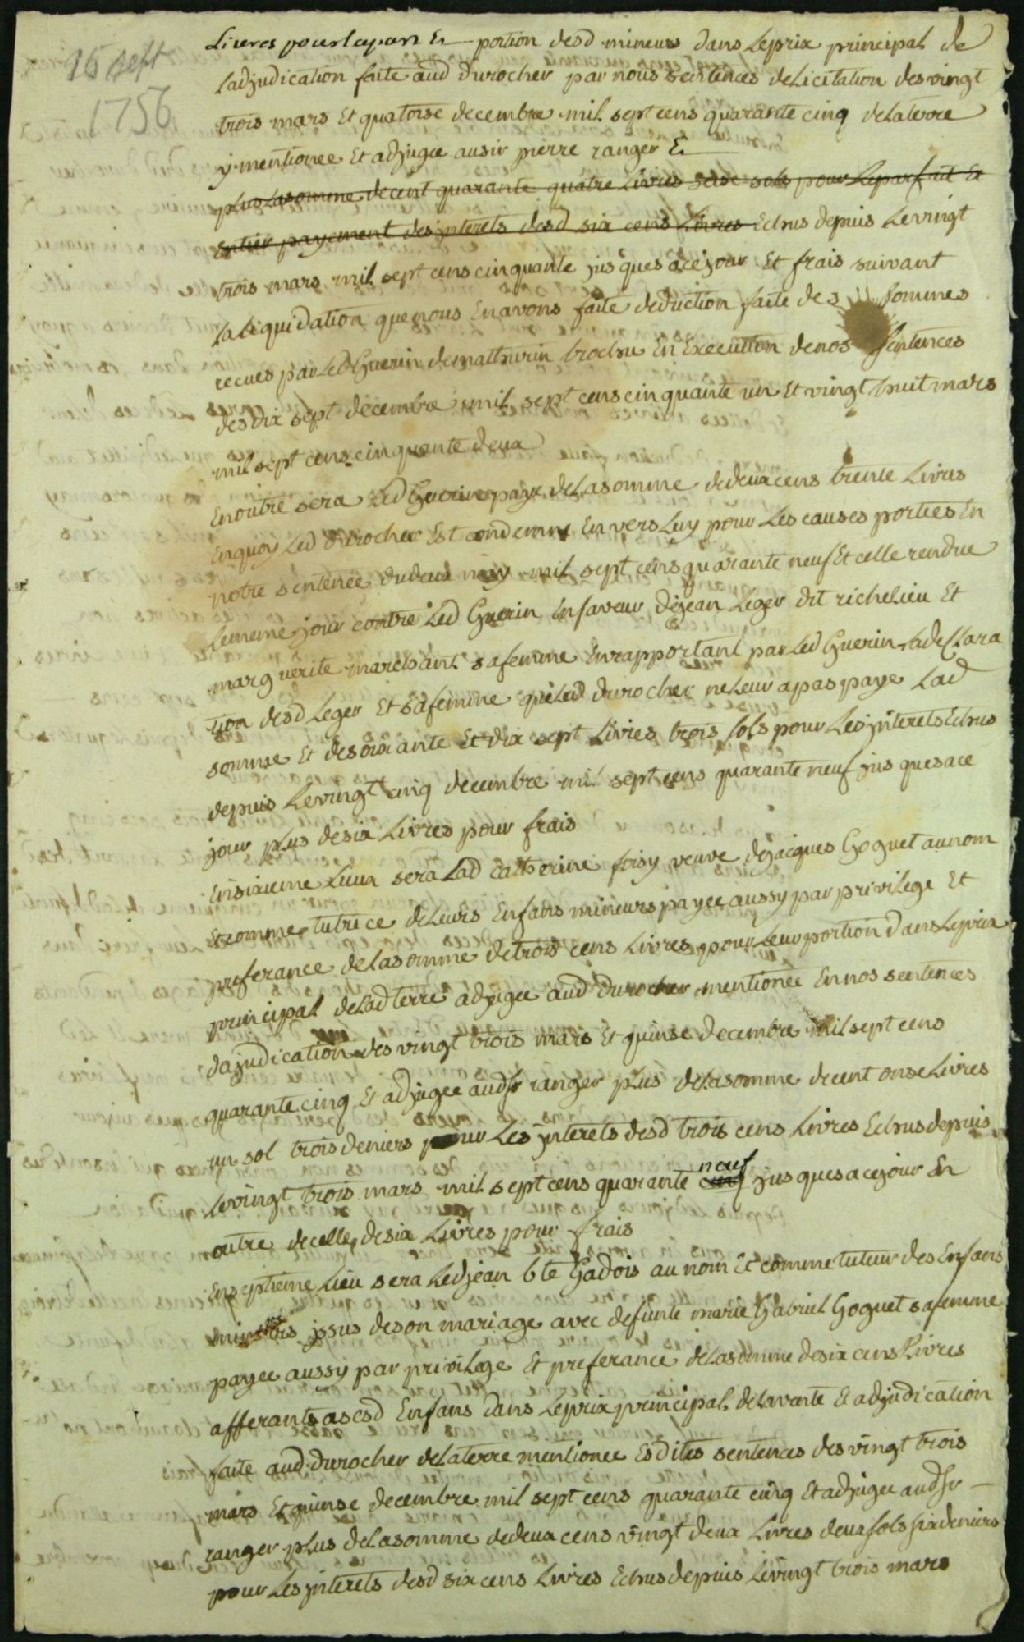 15 sept
1756
Livres pour la part Et portion desd mineurs dans Leprix principal de
Ladjudication faite aud durocher par nous sentences deLicitation des vingt
trois mars Et quatorse decembre mil sept cens quarante cinq de laterre
y mentionee Et adjugee au sir pierre ranger Et
plus Lasomme decent quarante quatre Livres seise sols pour Leparfait Et
Entier payement des jnterets desd six cens Livres Echus depuis Levingt
trois mars mil sept cens cinquante jusques acejour Et frais suivant
La Liquidation que nous En avons faite deduction faite des sommes
recues par Led Guerin demathurin brochu En Execution denos sentences
des dix sept decembre mil sept cens cinquante un Et vingt huit mars
mil sept cens cinquante deux
En outre sera Led Guerin paye deLasomme dedeux cens trente Livres
Enquoy Led durocher Est condemne En vers Luy pour Les causes porties En
notre sentence dudeux may mil sept cens quarante neuf Et celle rendue
Lememe jour contre Led Guerin Enfaveur dejean Leger dit richelieu Et
marguerite marchant safemme En rapportant par Led Guerin Ladeclara
tion desd Leger Et safemme que Led durocher ne Leur a pas paye Lad
somme Et desoixante Et dix sept Livres trois sols pour Les jnterets Echus
depuis Levingt cinq decembre mil sept cens quarante neuf jusquesace
jour plus desix Livres pour frais
Ensixieme Lieu sera Lad catherine foisy veuve dejacques Goguet aunom
Et comme tutrice deLeurs Enfans mineurs payee aussy par privilege Et
preferance deLasomme detrois cens Livres pour Leur portion dans Leprix
principal deLad terre adjugee aud durocher mentionee En nos sentences
dajudication des vingt trois mars Et quinse decembre mil sept cens
quarante cinq Et adjugee audsr ranger plus deLasomme decent onse Livres
un sol trois deniers pour Les jnterets desd trois cens Livres Echus depuis
Levingt trois mars mil sept cens quarante cinq neuf jusques acejour En
outre decelle desix Livres pour frais
En septieme Lieu sera Led jean bte Gadois au nom Et comme tuteur des Enfans
mineurs jssus deson mariage avec defunte marie Gabriel Goguet safemme
payee aussy par privilege Et preferance deLasomme desix cens Livres
afferants ascsd Enfans dans Leprix principal delavente Et adjudication
faite aud durocher delaterre mentionee Esdites sentences des vingt trois
mars Et quinse decembre mil sept cens quarante cinq Et adjugee audsr
ranger plus deLasomme dedeux cens vingt deux Livres deux sols six deniers
pour Les jnterets desd six cens Livres Echus depuis Levingt trois mars